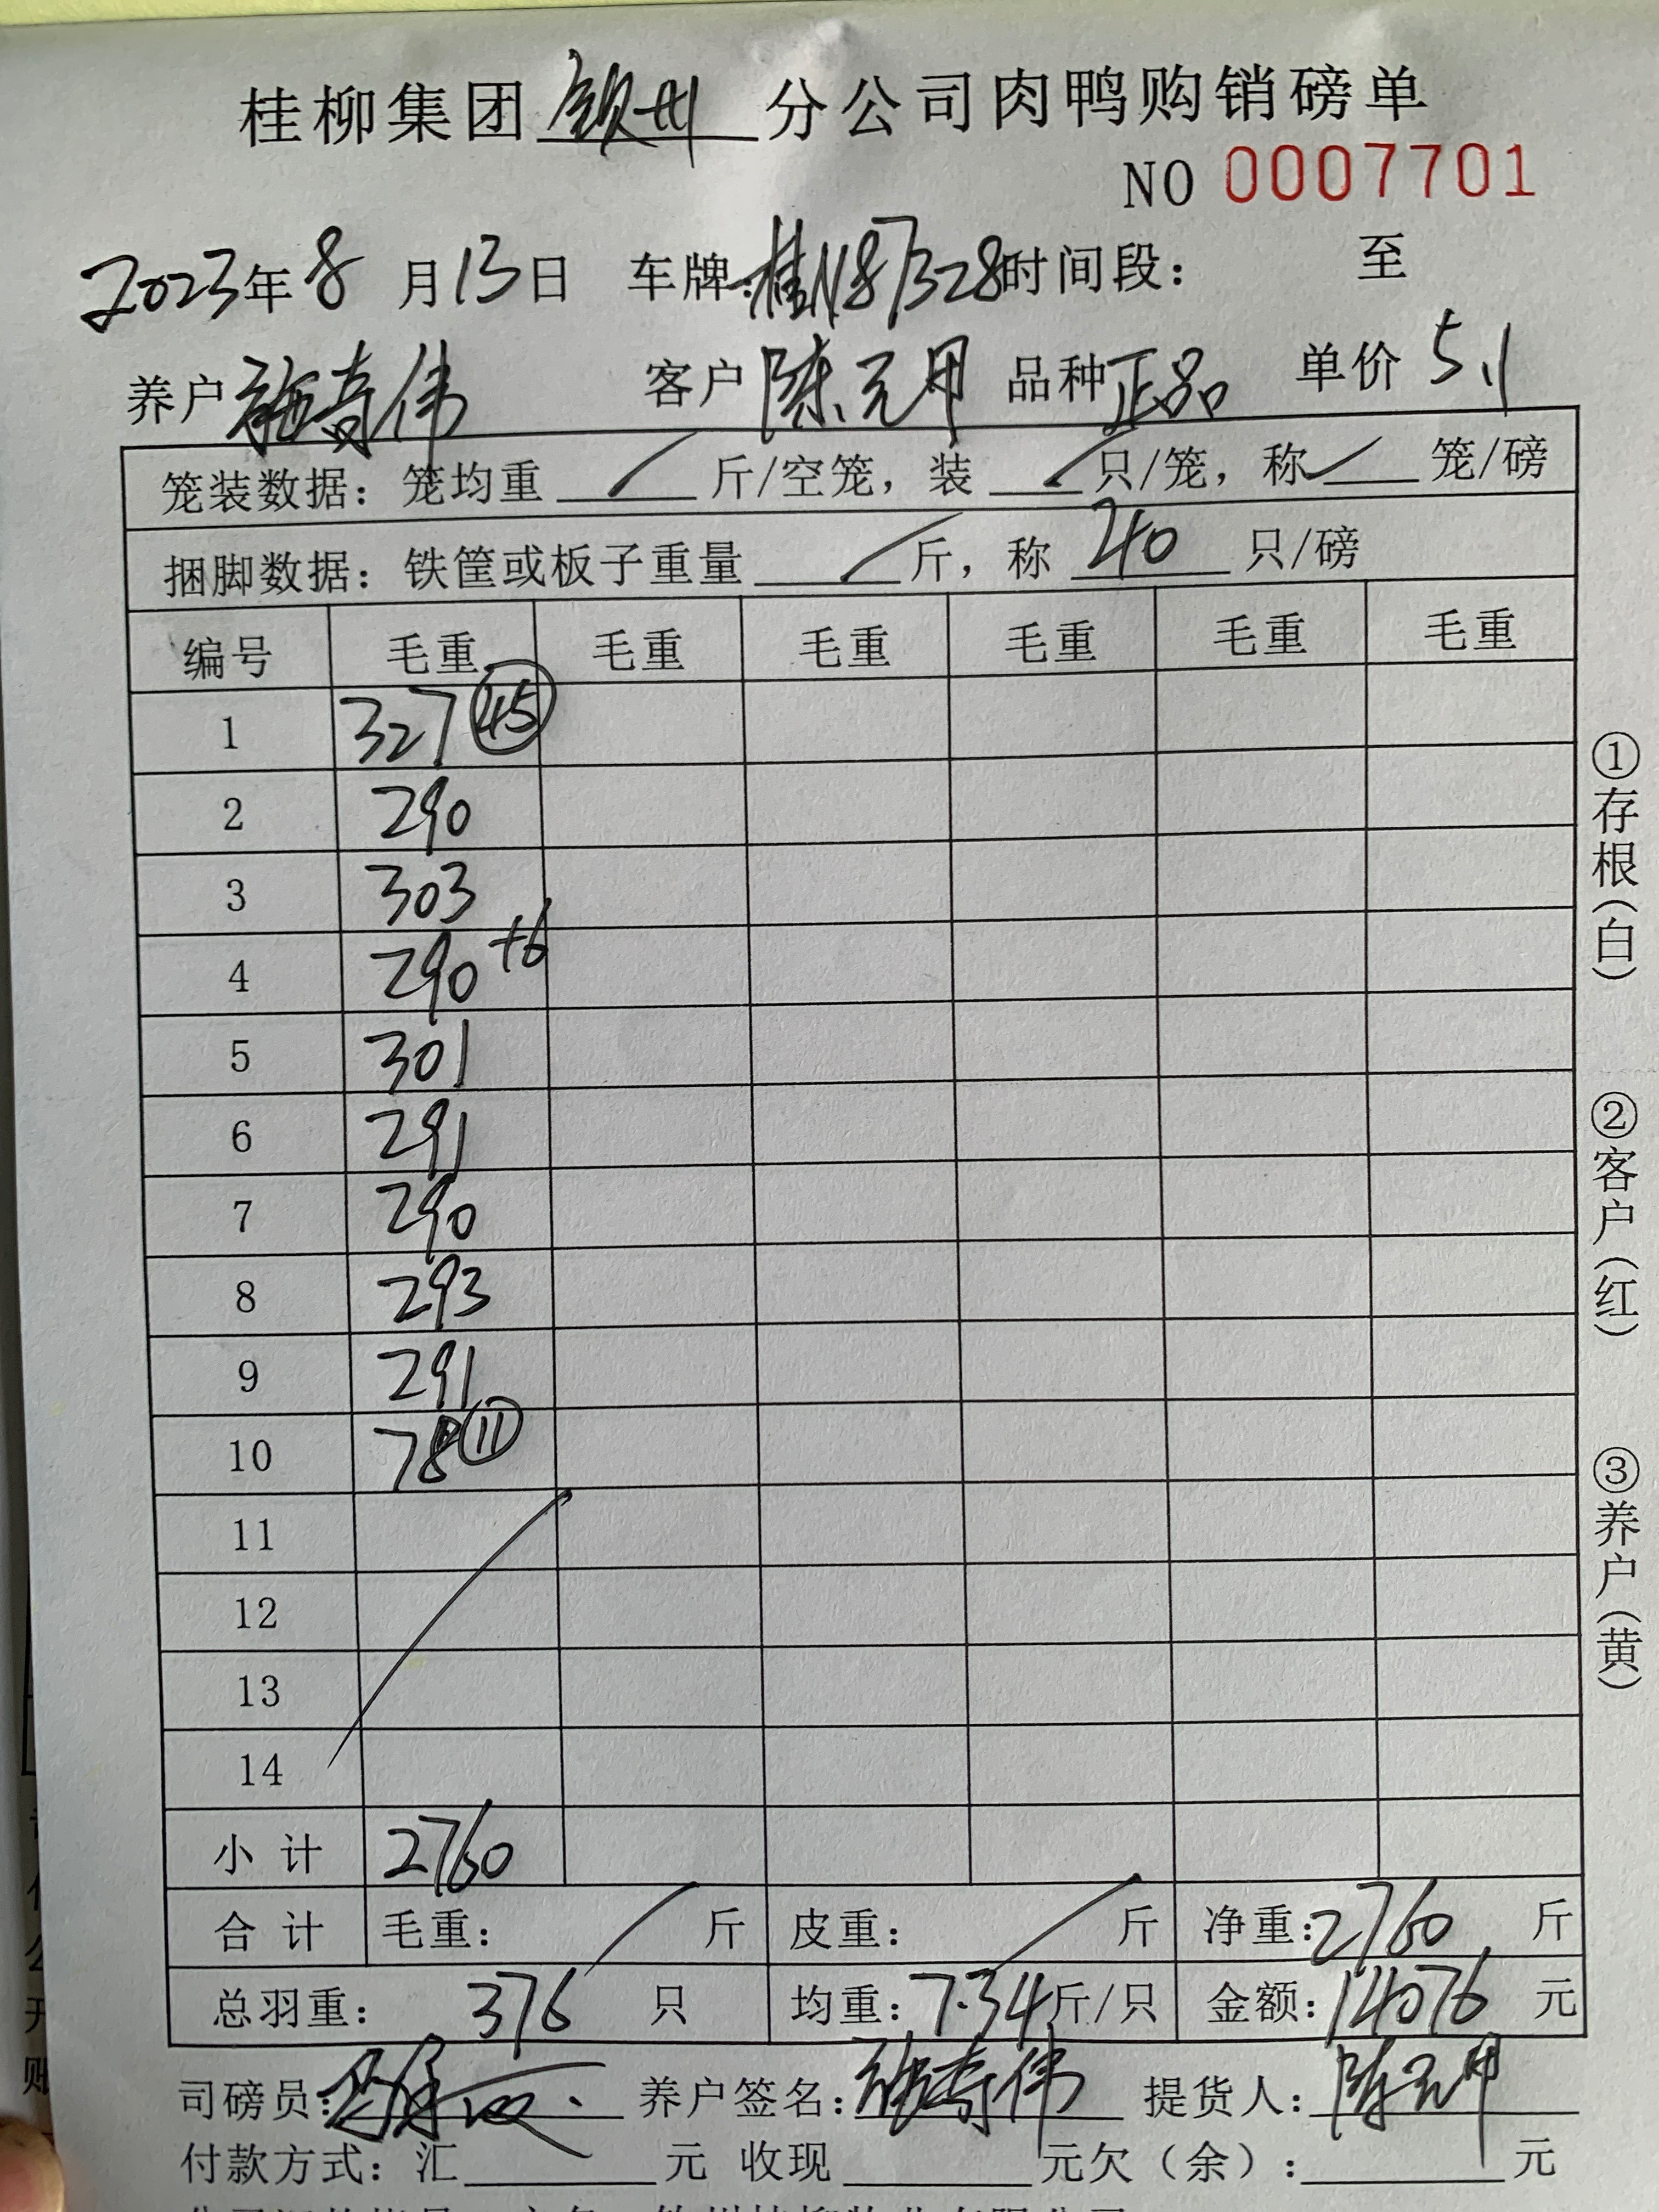 桂柳集团钦州分公司肉鸭购销磅单
NO 0007701
2023年8月13日 车牌:桂N87328时间段: 至
养户施奇伟 客户陈元甲 品种正品 单价5.1
笼装数据:笼均重/斤/空笼,装/只/笼,称/笼/磅
捆脚数据:铁筐或板子重量/斤,称40只/磅
编号 毛重 毛重 毛重 毛重 毛重 毛重
1 327 45
2 290
3 303
4 290+6
5 301
6 291
7 290
8 293
9 291
10 78 11
11
12
13
14
小计 2760
合计 毛重:/斤 皮重:/斤 净重:2760斤
总羽重:376只 均重:7.34斤/只 金额:14076元
司磅员: 养户签名:施奇伟 提货人:陈元甲
付款方式:汇 元 收现 元欠(余): 元
①存根(白)
②客户(红)
③养户(黄)